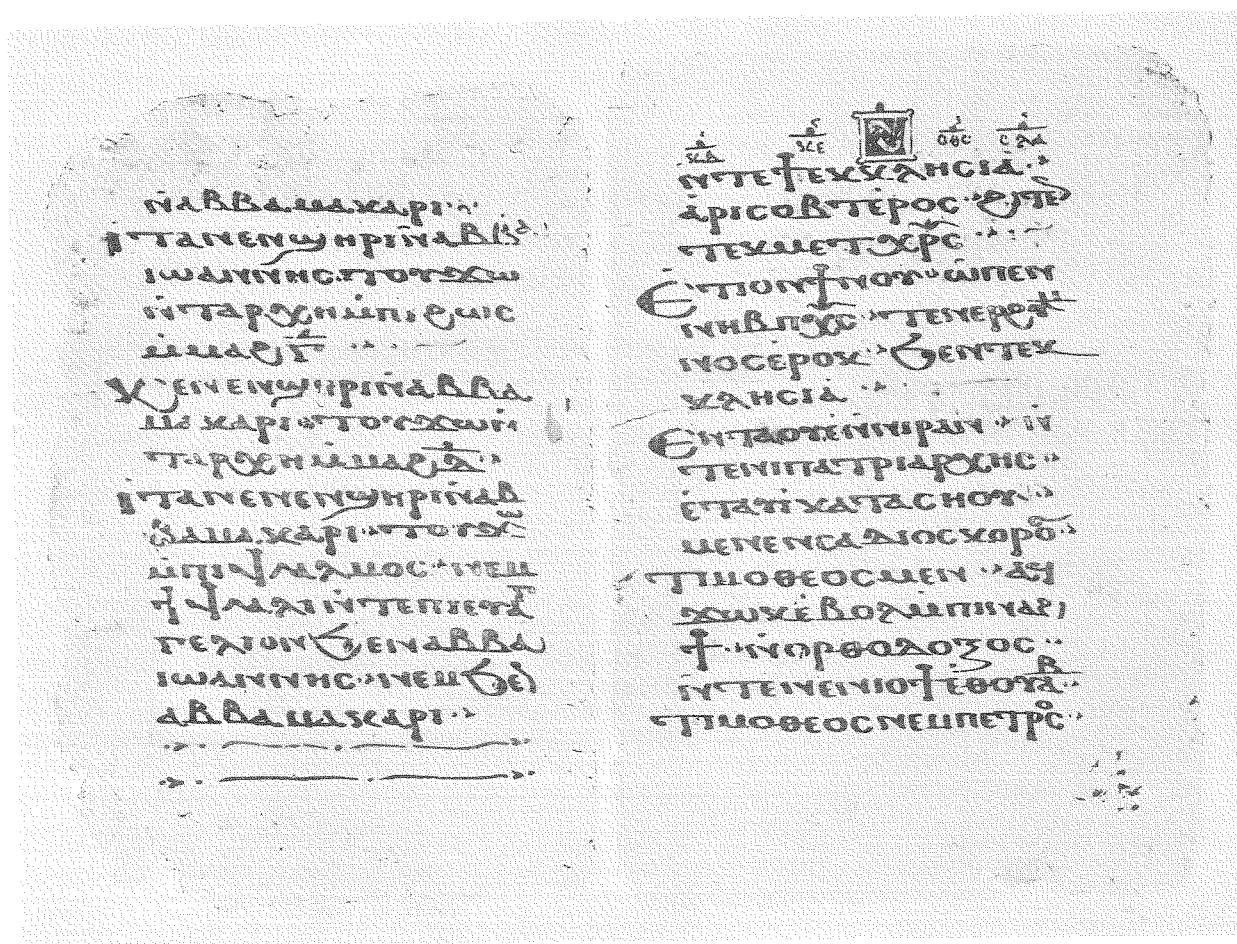 ⲛ̀ⲁⲃⲃⲁⲙⲁⲕⲁⲣⲓ··
ⲓⲧⲁⲛⲉⲛϣⲏⲣⲓⲛ̀ⲁⲃⲃⲁ·
ⲓⲱⲁⲛⲛⲏⲥ·ⲧⲟⲩϫⲱ
ⲛ̀ⲧⲁⲣⲭⲏⲙⲡⲓϩⲱⲥ
ⲙ̀ⲙⲁϩⲅ̅
ⲕⲉⲛⲉⲛϣⲏⲣⲓⲛ̀ⲁⲃⲃⲁ
ⲙⲁⲕⲁⲣⲓ·ⲧⲟⲩϫⲱⲛ̀
ⲧⲁⲣⲭⲏⲙ̀ⲙⲁϩⲇ̅··
ⲓⲧⲁⲛⲉⲛⲉⲛϣⲏⲣⲓⲛ̀ⲁⲃ
ⲃⲁⲙⲁⲕⲁⲣⲓ··ⲧⲟⲩϫⲱ
ⲙ̀ⲡⲓⲯⲁⲗⲙⲟⲥ··ⲛⲉⲙ
ϯⲯⲁⲗⲓⲛ̀ⲧⲉⲡⲓⲉⲩⲁⲅ
ⲅⲉⲗⲓⲟⲛϧⲉⲛⲁⲃⲃⲁ
ⲓⲱⲁⲛⲛⲏⲥ··ⲛⲉⲙϧⲉⲛ
ⲁⲃⲃⲁⲙⲁⲕⲁⲣⲓ··
ⲛ̀ⲧⲉϯⲉⲕⲕⲗⲏⲥⲓⲁ̀··
ⲁ̀ⲣⲓⲥⲟⲃⲧⲉ̀ⲣⲟⲥ··ϩⲓⲧⲉⲛ
ⲧⲉⲕⲙⲉⲧⲭ̅ⲣ̅ⲥ̅
ⲉⲧⲓⲟⲛϯⲛⲟⲩ··ⲱ̀ⲡⲉⲛ
ⲛⲏⲃⲡⲭ̅ⲥ̅··ⲧⲉⲛⲉⲣϩⲏ
ⲛⲟⲥⲉ̀ⲣⲟⲕ··ϧⲉⲛⲧⲉⲕ
ⲕⲗⲏⲥⲓⲁ̀··
ⲉⲛⲧⲁⲟⲩⲉ̀ⲛⲛⲓⲣⲁⲛ··ⲛ̀
ⲧⲉⲛⲓⲡⲁⲧⲣⲓⲁⲣⲭⲏⲥ··
ⲉ̀ⲧⲁⲩⲕⲁⲧⲁⲥⲏⲟⲩ··
ⲙⲉⲛⲉⲛⲥⲁⲇⲓⲟⲥⲕⲟⲣⲟⲥ·
ⲧⲓⲙⲟⲑⲉⲟⲥⲙⲉⲛ··ⲁϥ
ϫⲱⲕⲉ̀ⲃⲟⲗⲙ̀ⲡⲓⲛⲁϩ
ϯ··ⲛ̀ⲟⲣⲑⲟⲇⲟⲝⲟⲥ··
ⲛ̀ⲧⲉⲛⲉⲛⲓⲟϯⲉ̀ⲑⲟⲩⲁⲃ··
ⲧⲓⲙⲟⲑⲉⲟⲥⲛⲉⲙⲡⲉⲧⲣⲟⲥ·